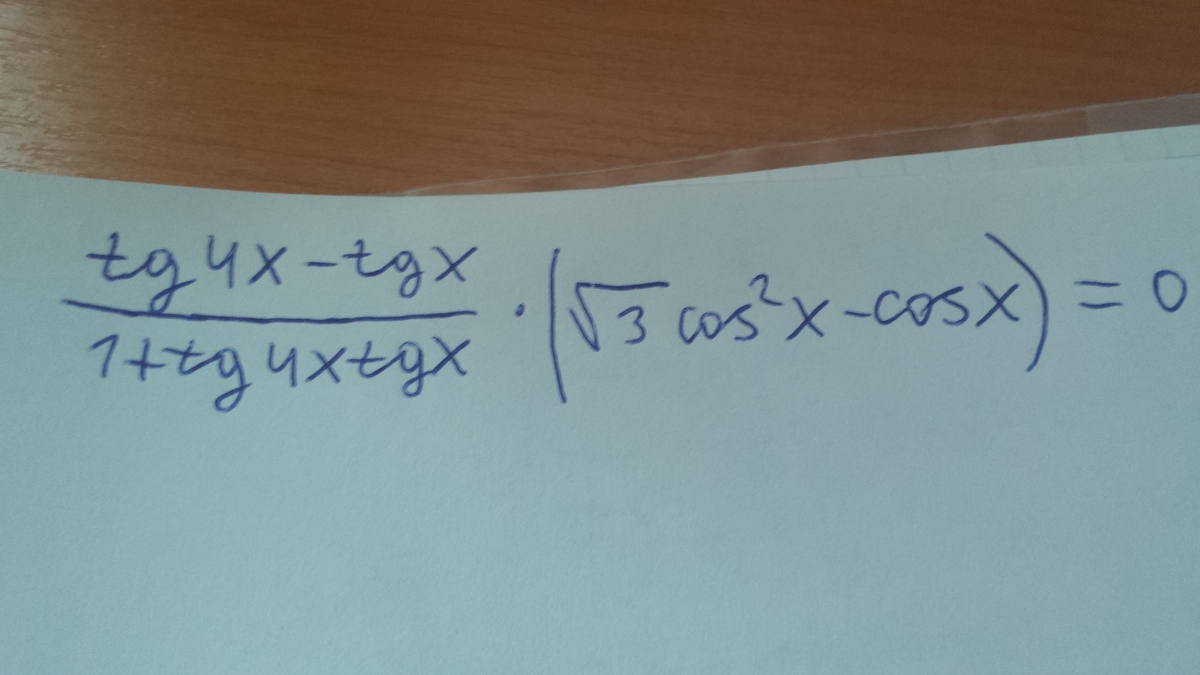 tg 4x - tg x / 1 + tg 4x tg x · (√3 cos² x - cos x) = 0